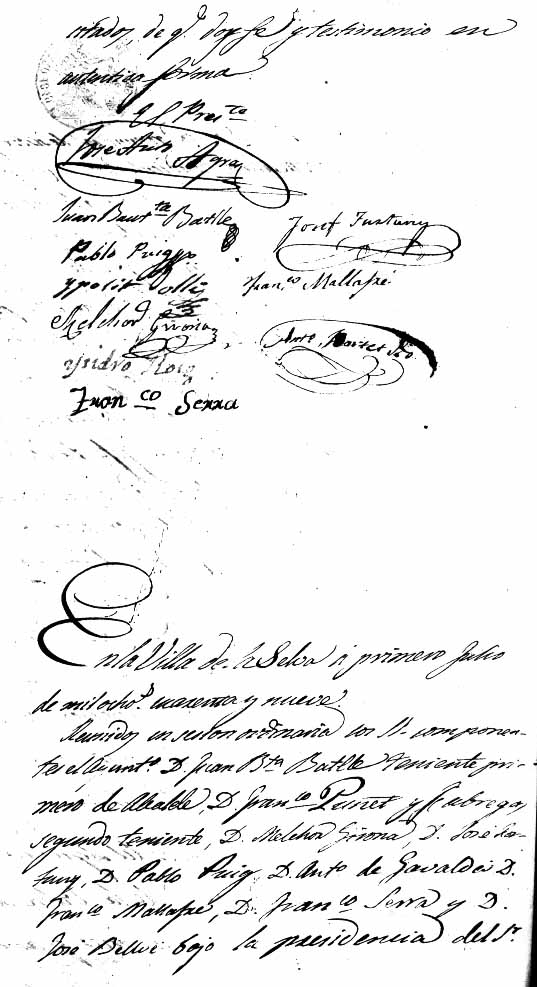 citados, de q.e doy fe y testimonio en
autentica forma
El Pres.te
Jose Ant.
Juan Baut.ta Batlle
Josef Fustuny
Pablo Puig
Ypolit Dolli
Fran.co Mallafré
Melchor Girona
Ant.o
Ysidro Roig
Fran co Serra
En la Villa de la Selva á primero Julio
de mil ocho.s cuarenta y nueve.
Reunidos en sesion ordinaria los SS. componen-
tes el Ayunt.o D. Juan B.ta Batlle teniente pri-
mero de Alcalde, D. Fran.co Puñet y Fabrega,
segundo teniente, D. Melchor Girona, D. José Fus-
tuny, D. Pablo Puig, D. Ant.o de Gavaldá D.
Fran.co Mallafré, D. Fran.co Serra y D.
José Bellvé bajo la presidencia del S.r